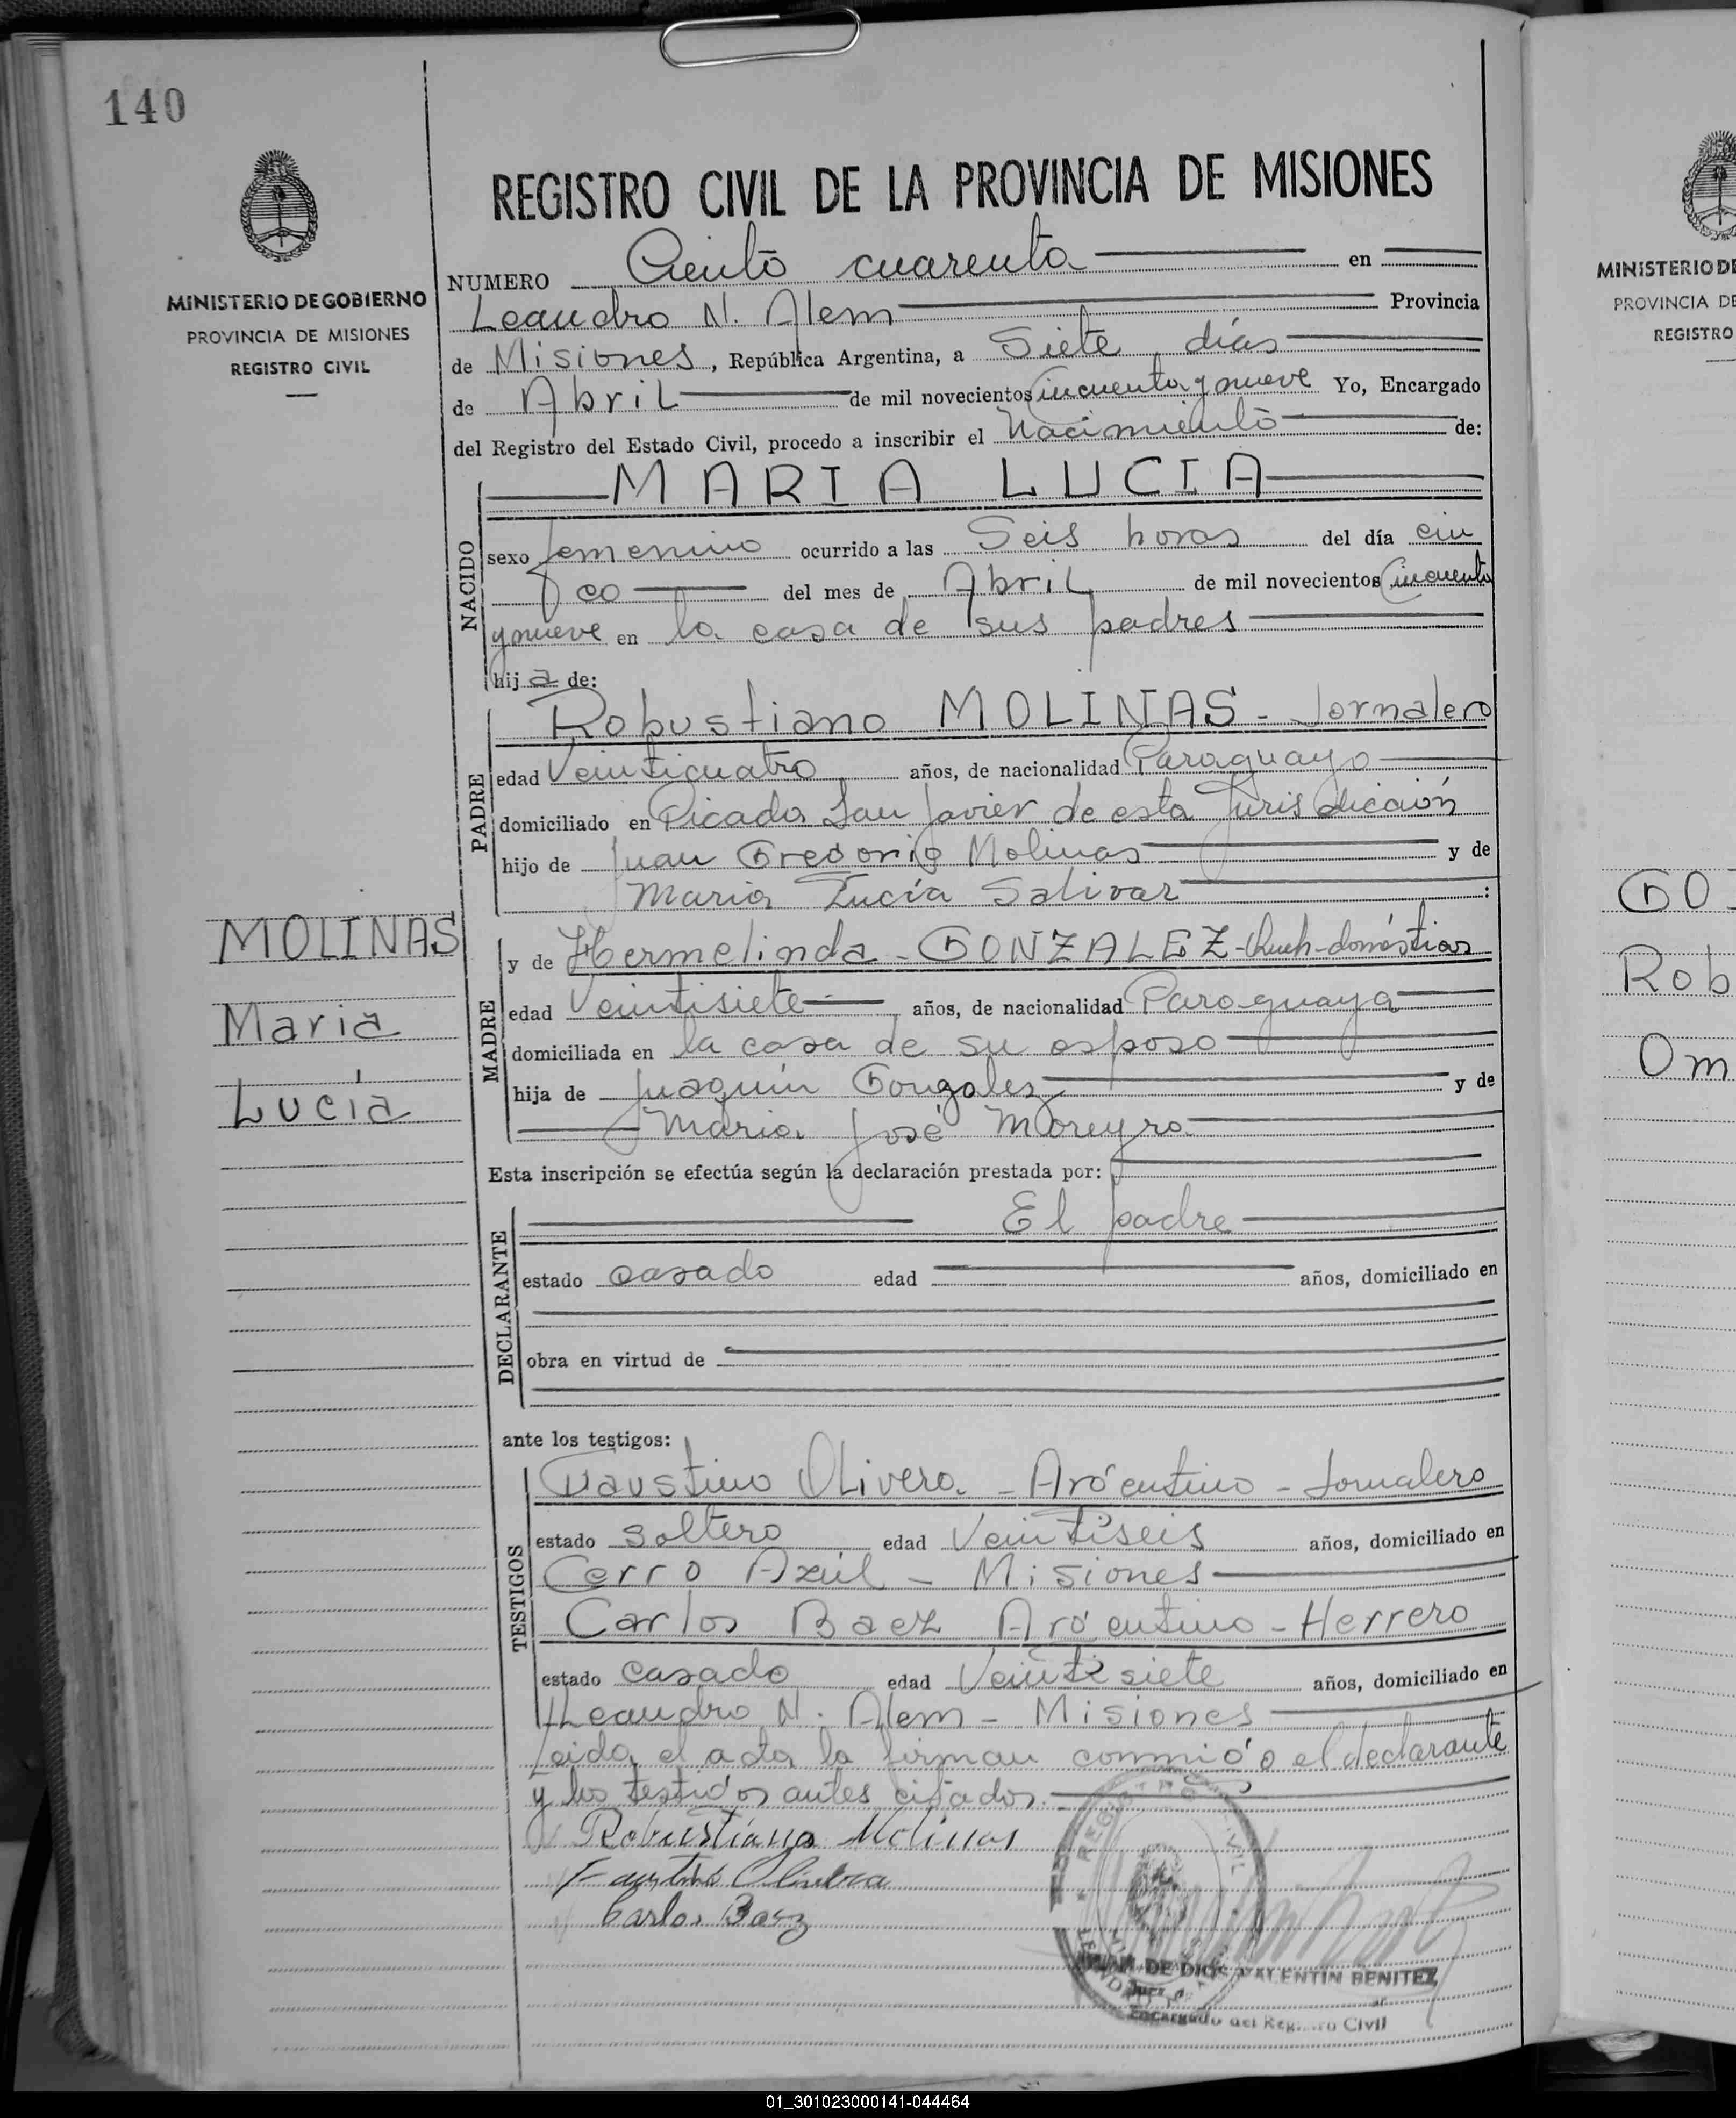 140
MINISTERIO DE GOBIERNO
PROVINCIA DE MISIONES
REGISTRO CIVIL
REGISTRO CIVIL DE LA PROVINCIA DE MISIONES
NUMERO Ciento cuarenta en
Leandro N. Alem Provincia
de Misiones, República Argentina, a Siete días
de Abril de mil novecientos Cincuenta y nueve Yo, Encargado
del Registro del Estado Civil, procedo a inscribir el Nacimiento de:
NACIDO
MARIA LUCIA
sexo femenino ocurrido a las Seis horas del día cin
co del mes de Abril de mil novecientos Cincuenta
y nueve en la casa de sus padres
hij a de:
PADRE
Robustiano MOLINAS - Jornalero
edad Veinticuatro años, de nacionalidad Paraguayo
domiciliado en Picada San Javier de esta Jurisdicción
hijo de Juan Gregorio Molinas y de
Maria Lucía Salivar :
MOLINAS
Maria
Lucía
MADRE
y de Hermelinda - GONZALEZ - domésticos
edad Veintisiete años, de nacionalidad Paraguaya
domiciliada en la casa de su esposo
hija de Juaquin Gonzalez y de
Maria José Moreyra
Esta inscripción se efectúa según la declaración prestada por:
DECLARANTE
El padre
estado casado edad años, domiciliado en
obra en virtud de
ante los testigos:
TESTIGOS
Faustino Olivera - Argentino - Jornalero
estado soltero edad Veintiseis años, domiciliado en
Cerro Azúl - Misiones
Carlos Baez Argentino - Herrero
estado casado edad Veintisiete años, domiciliado en
Leandro N. Alem - Misiones
Leida el acta la firman conmigo el declarante
y los testigos antes citados.
Robustiano Molinas
Faustino Olivera
Carlos Baez
REGISTRO CIVIL
DE DIOS VALENTIN BENITEZ
Encargado del Registro Civil
MINISTERIO DE
PROVINCIA DE
REGISTRO
GO
Rob
Om
01_301023000141-044464